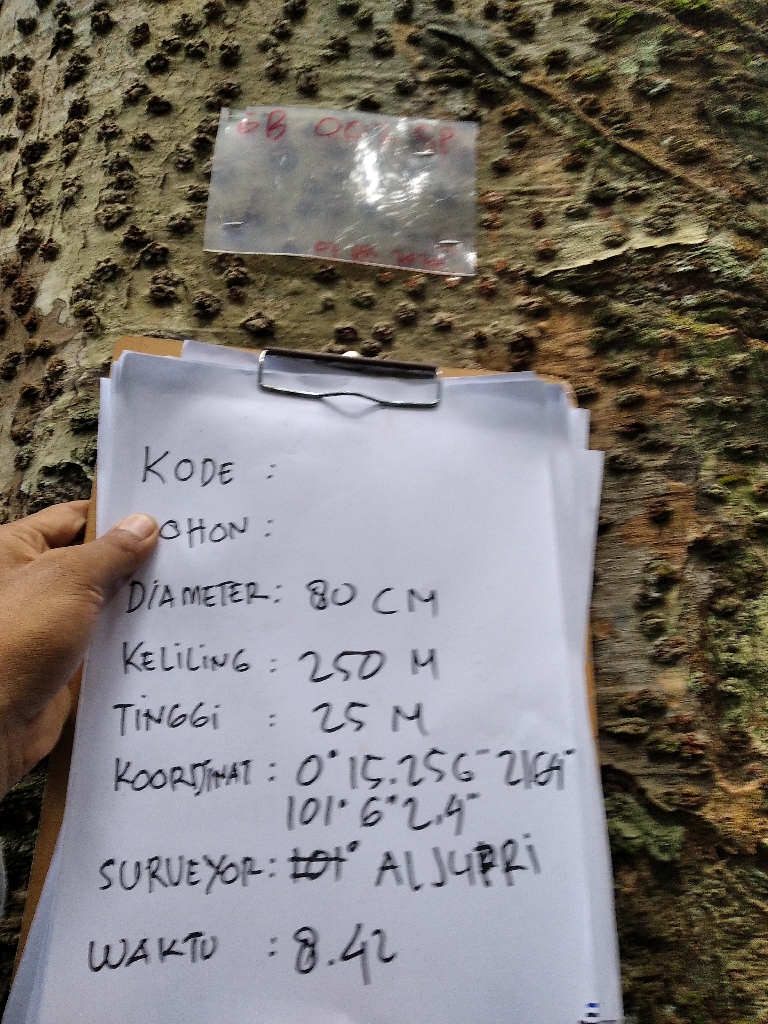 6B
KODE :
OHON :
DIAMETER : 80 CM
KELILING : 250 M
TINGGI : 25 M
KOORDINAT :
101° 6" 2.4"
SURVEYOR : ALJUPRI
WAKTU : 8.42